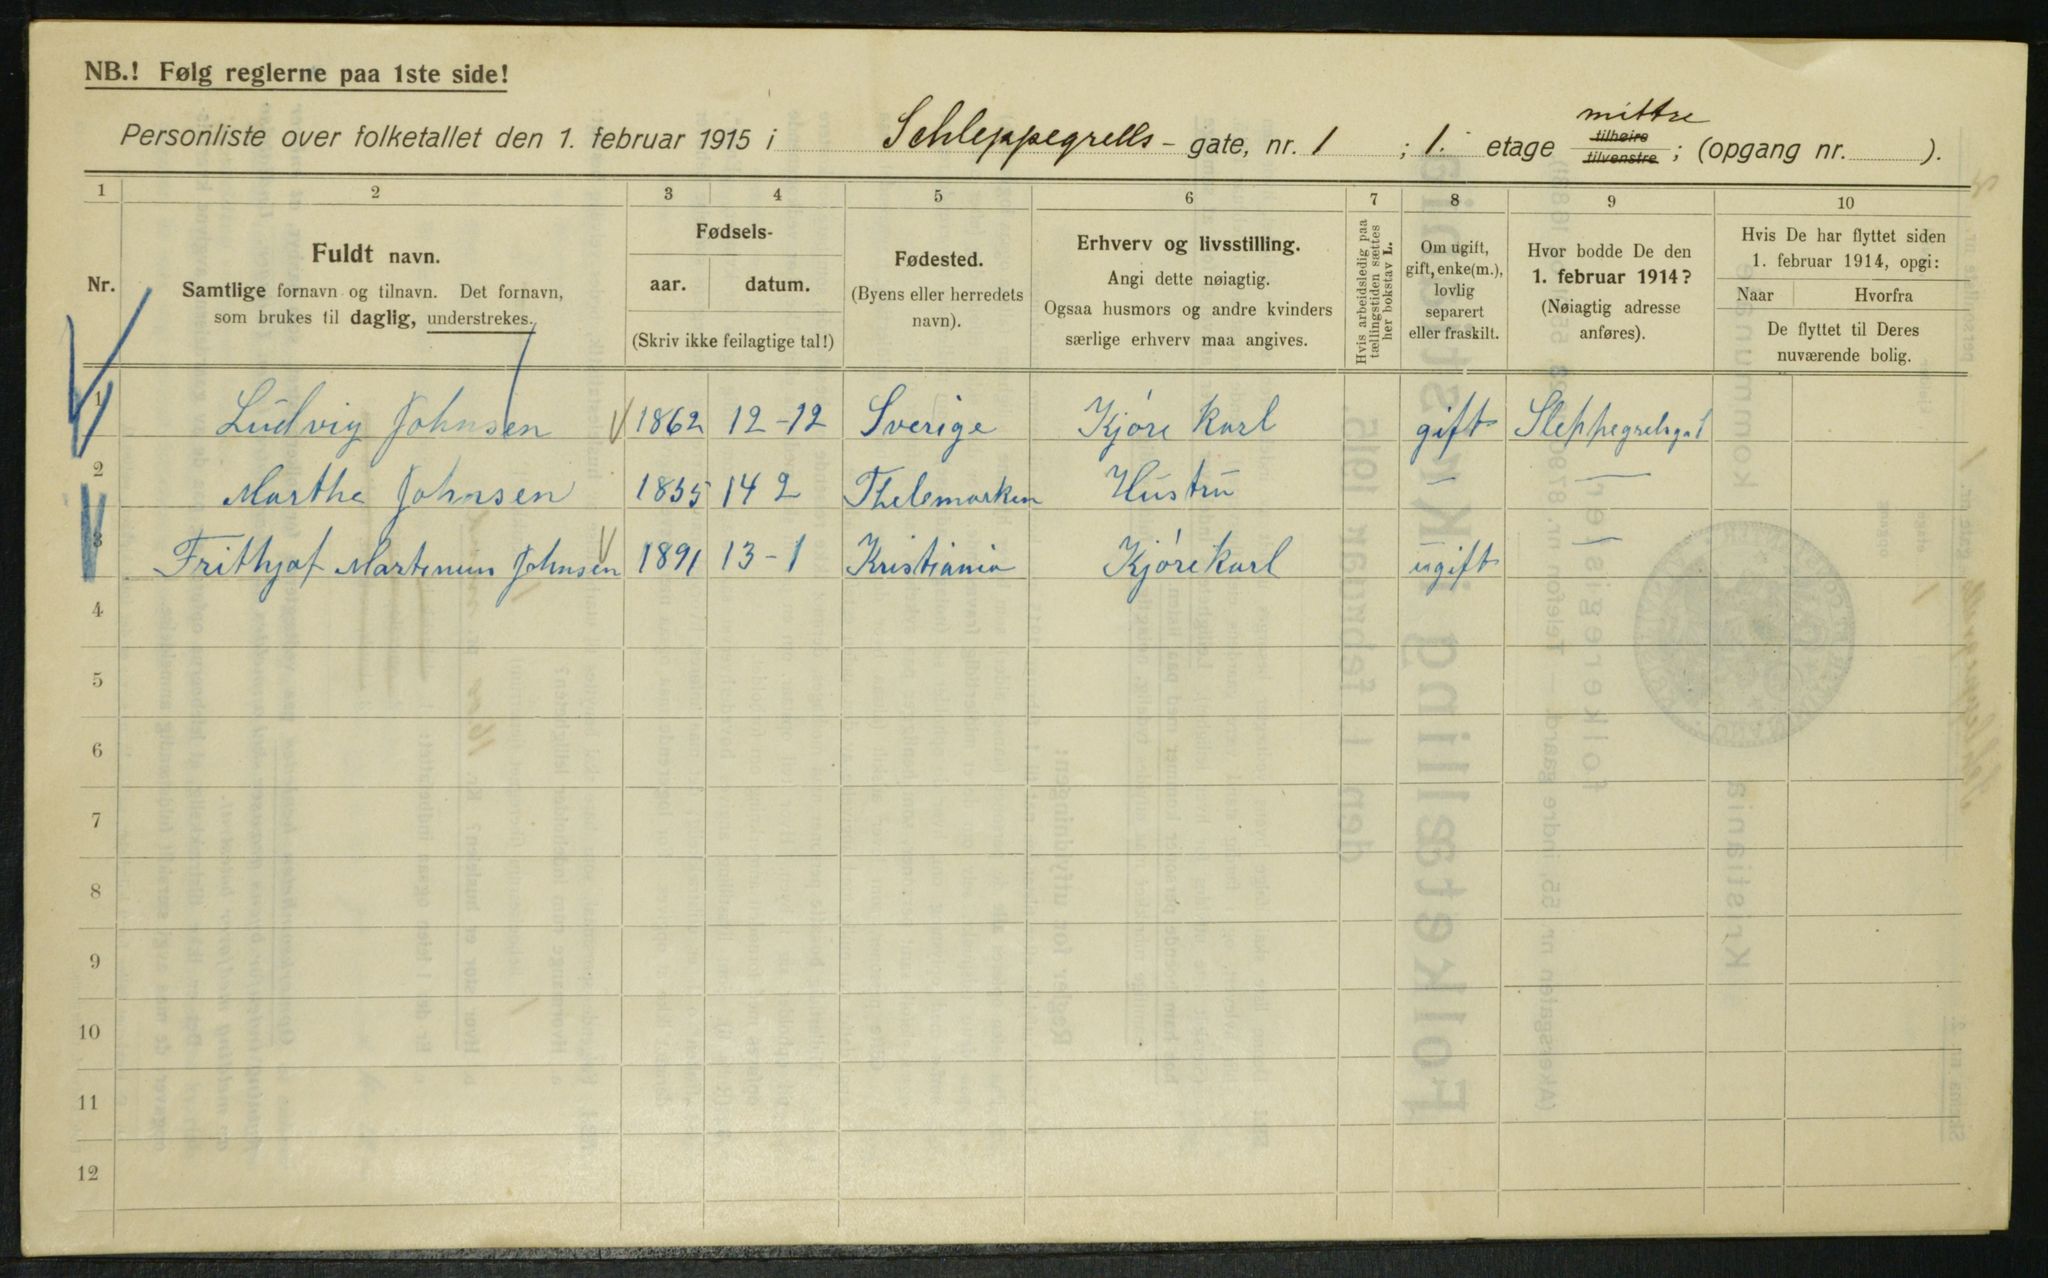 NB.! Følg reglerne paa 1ste side!
mittre
Personliste over folketallet den 1. februar 1915 i Schleppegrells - gate, nr. 1 ; 1. etage tilhøire tilvenstre ; (opgang nr. ).
1 2 3 4 5 6 7 8 9 10
Nr.
Fuldt navn.
Samtlige fornavn og tilnavn. Det fornavn,
som brukes til daglig, understrekes.
Fødsels-
aar. datum.
(Skriv ikke feilagtige tal!)
Fødested.
(Byens eller herredets
navn).
Erhverv og livsstilling.
Angi dette nøiagtig.
Ogsaa husmors og andre kvinders
særlige erhverv maa angives.
Hvis arbeidsledig paa
tællingstiden sættes
her bokstav L.
Om ugift,
gift, enke(m.),
lovlig
separert
eller fraskilt.
Hvor bodde De den
1. februar 1914?
(Nøiagtig adresse
anføres).
Hvis De har flyttet siden
1. februar 1914, opgi:
Naar Hvorfra
De flyttet til Deres
nuværende bolig.
1 Ludvig Johnsen 1862 12-12 Sverige Kjøre karl gift Sleppegrelsgt 1
2 Marthe Johnsen 1855 14 2 Thelemarken Hustru — —
3 Frithjof Martinius Johnsen 1891 13-1 Kristiania Kjørekarl ugift
4
5
6
7
8
9
10
11
12